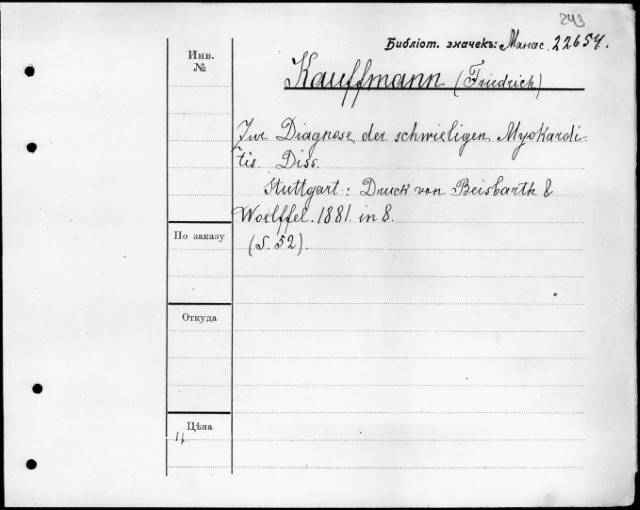 243
Библіот. значекъ: Манас. 22657.
Инв.
№
Kauffmann (Friedrich)
Zur Diagnose der schwieligen Myokardi-
tis. Diss.
Stuttgart: Druck von Beisbarth &
Woelffel. 1881. in 8.
По заказу
(S. 52).
Откуда
Цѣна